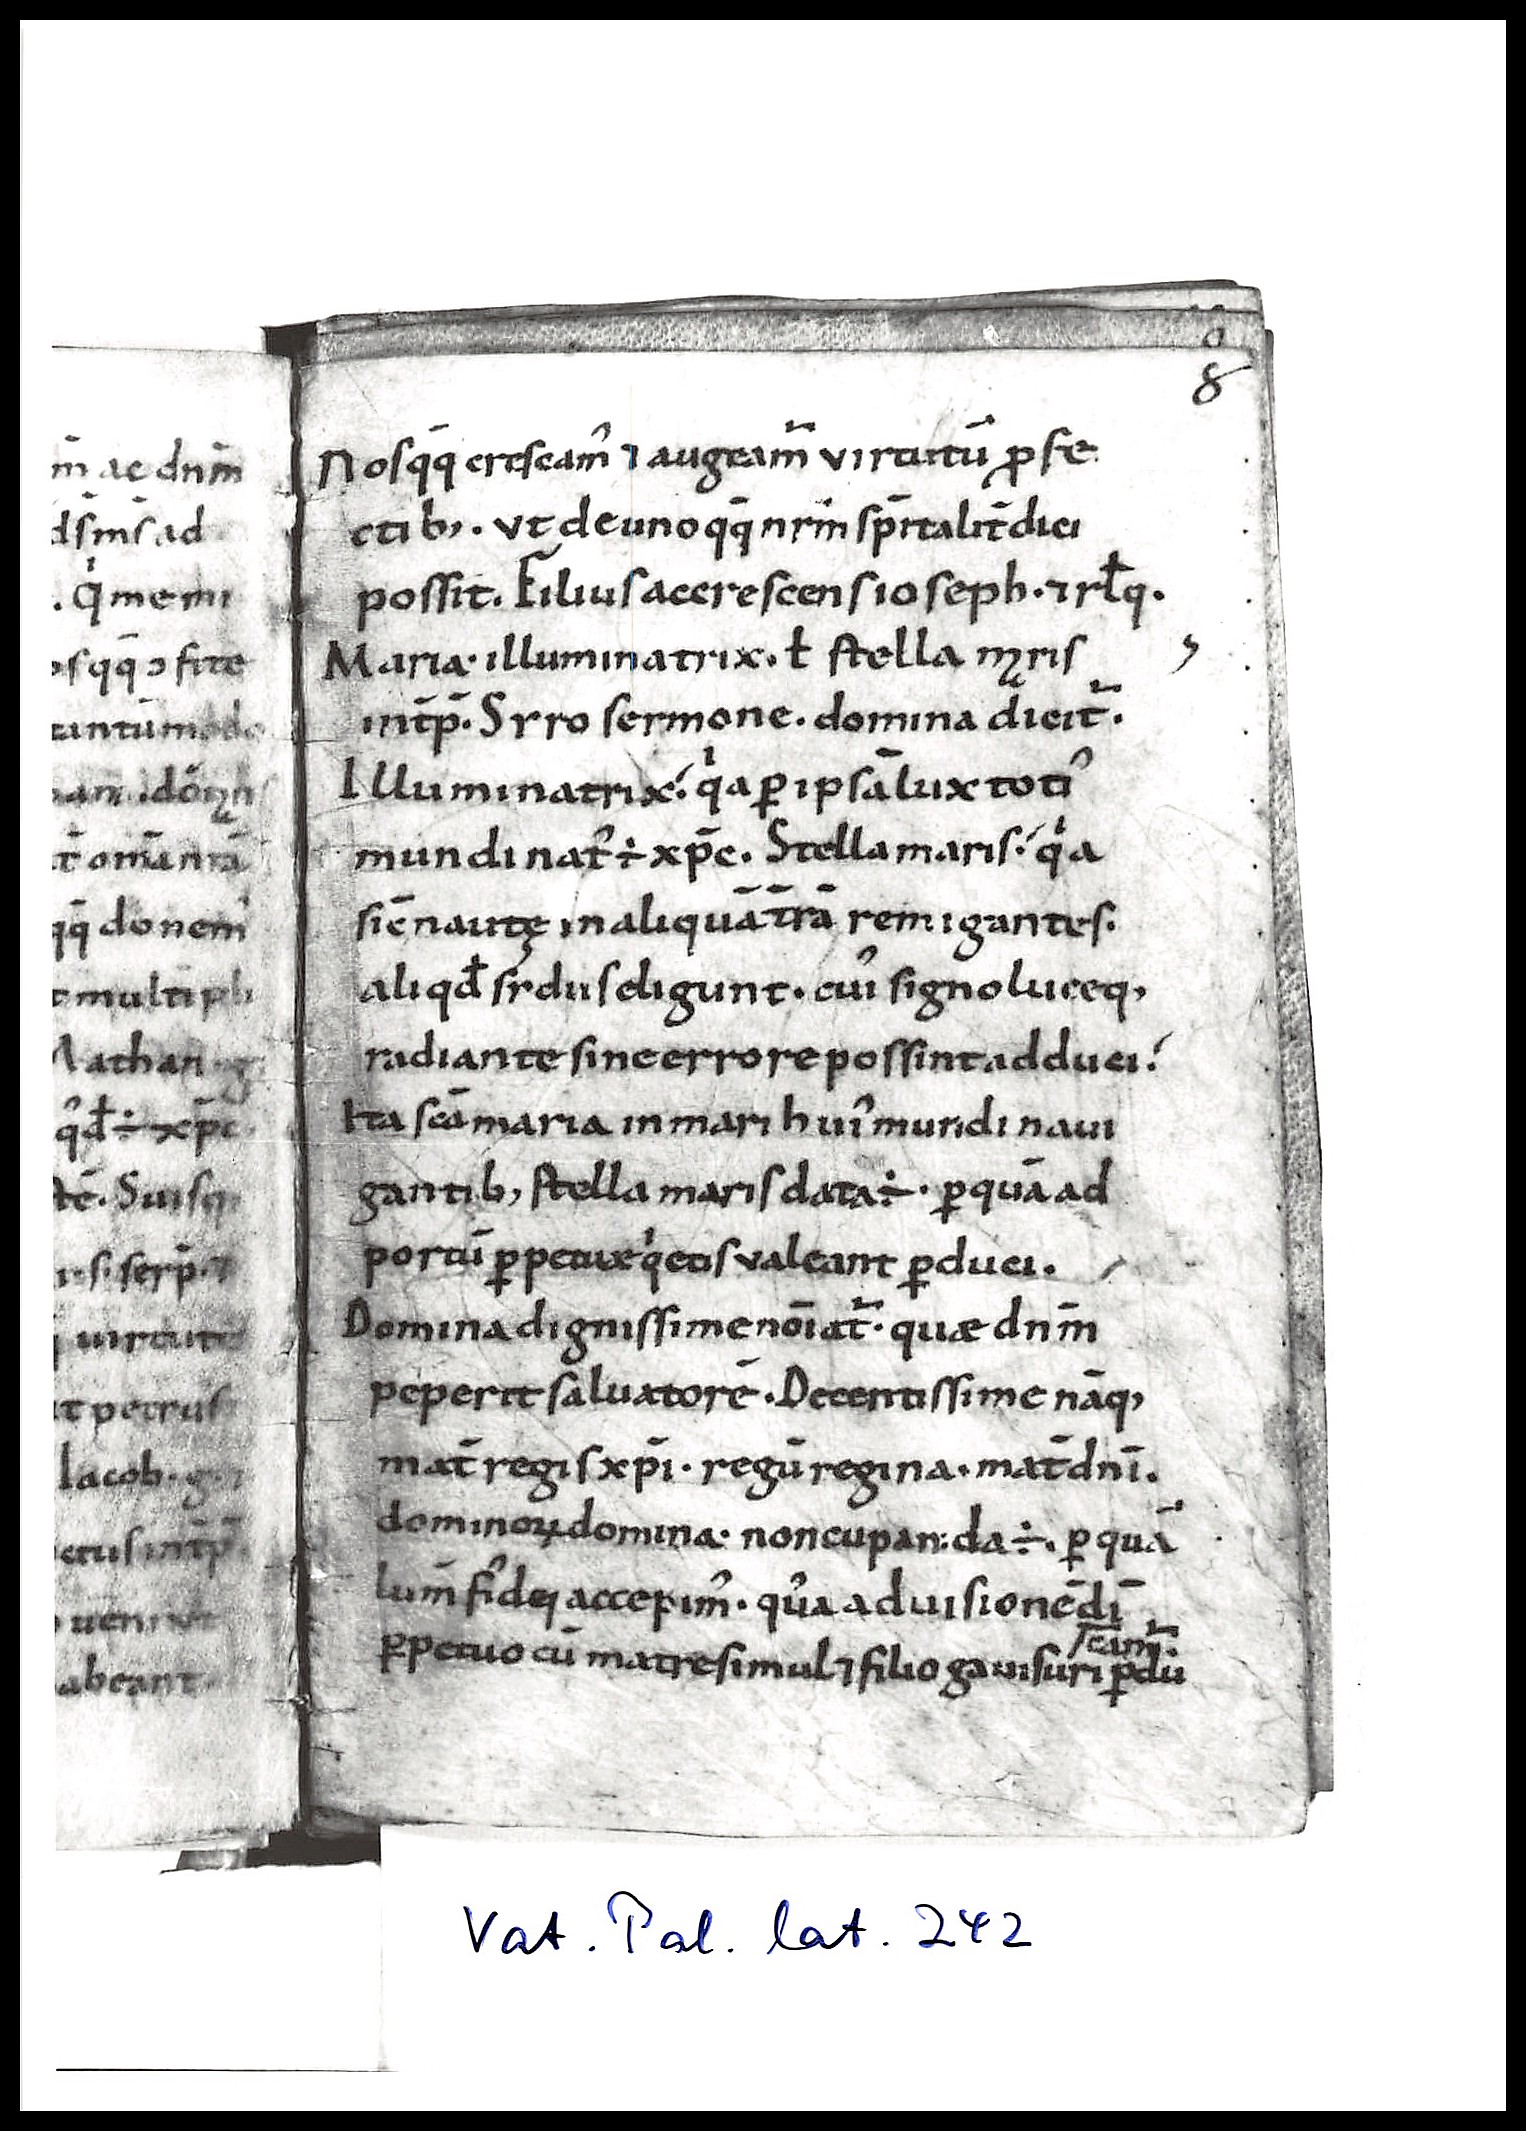 m̄ ac dnm̄
ds̄ ms̄ ad
. qͥ me mi
os qq̄ ꝯfite
tantūmodo
t̄ omā nr̄a
qq̄ donem᷒
t multipli
Nathan · g
q᷒d ÷ xp̄c
stē. Suisq,
r. s. serp̄. ⁊
uirtute
ut petrus
Iacob · g ·
ctus int̄p̄.
uenire
abeant ·
8
Nos qq̄ crescam᷒ ⁊ augeam̄ virtutū ꝓfe
ctib, . vt de uno qq̄ nrm̄ sp̄italit̄ dici
possit. Filius accrescens ioseph · ⁊ rłq.
Maria · illuminatrix. ł stella maris
int̄p̄. Syro sermone . domina dicit̄.
Illuminatrix. qͥa ꝑ ipsā lux toti᷒
mundi nat᷒ ÷ xp̄c. Stella maris. qͥa
sic̄ nautę in aliquā t̄rā remigantes.
aliqđ sydus eligunt . cui᷒ signo luceq,
radiante sine errore possint adduci.
Ita scā maria in mari hui᷒ mundi naui
gantib, stella maris data ÷ . ꝑ quā ad
portū ꝑpetuæ qͥetis valeant ꝑduci.
Domina dignissime noīat̄ · quæ dnm̄
peperit saluatorē . Decentissime nāq,
mat̄ regis xp̄i · regū regina . mat̄ dnī.
dominoꝝ domina · noncupanda ÷. ꝑ quā
lum̄ fidei accepim᷒ . q᷒a ad uisionē dī
ꝑpetuo cū matre simul ⁊ filio gauisuri ꝑdu
camͬ.
Vat. Pal. lat. 242